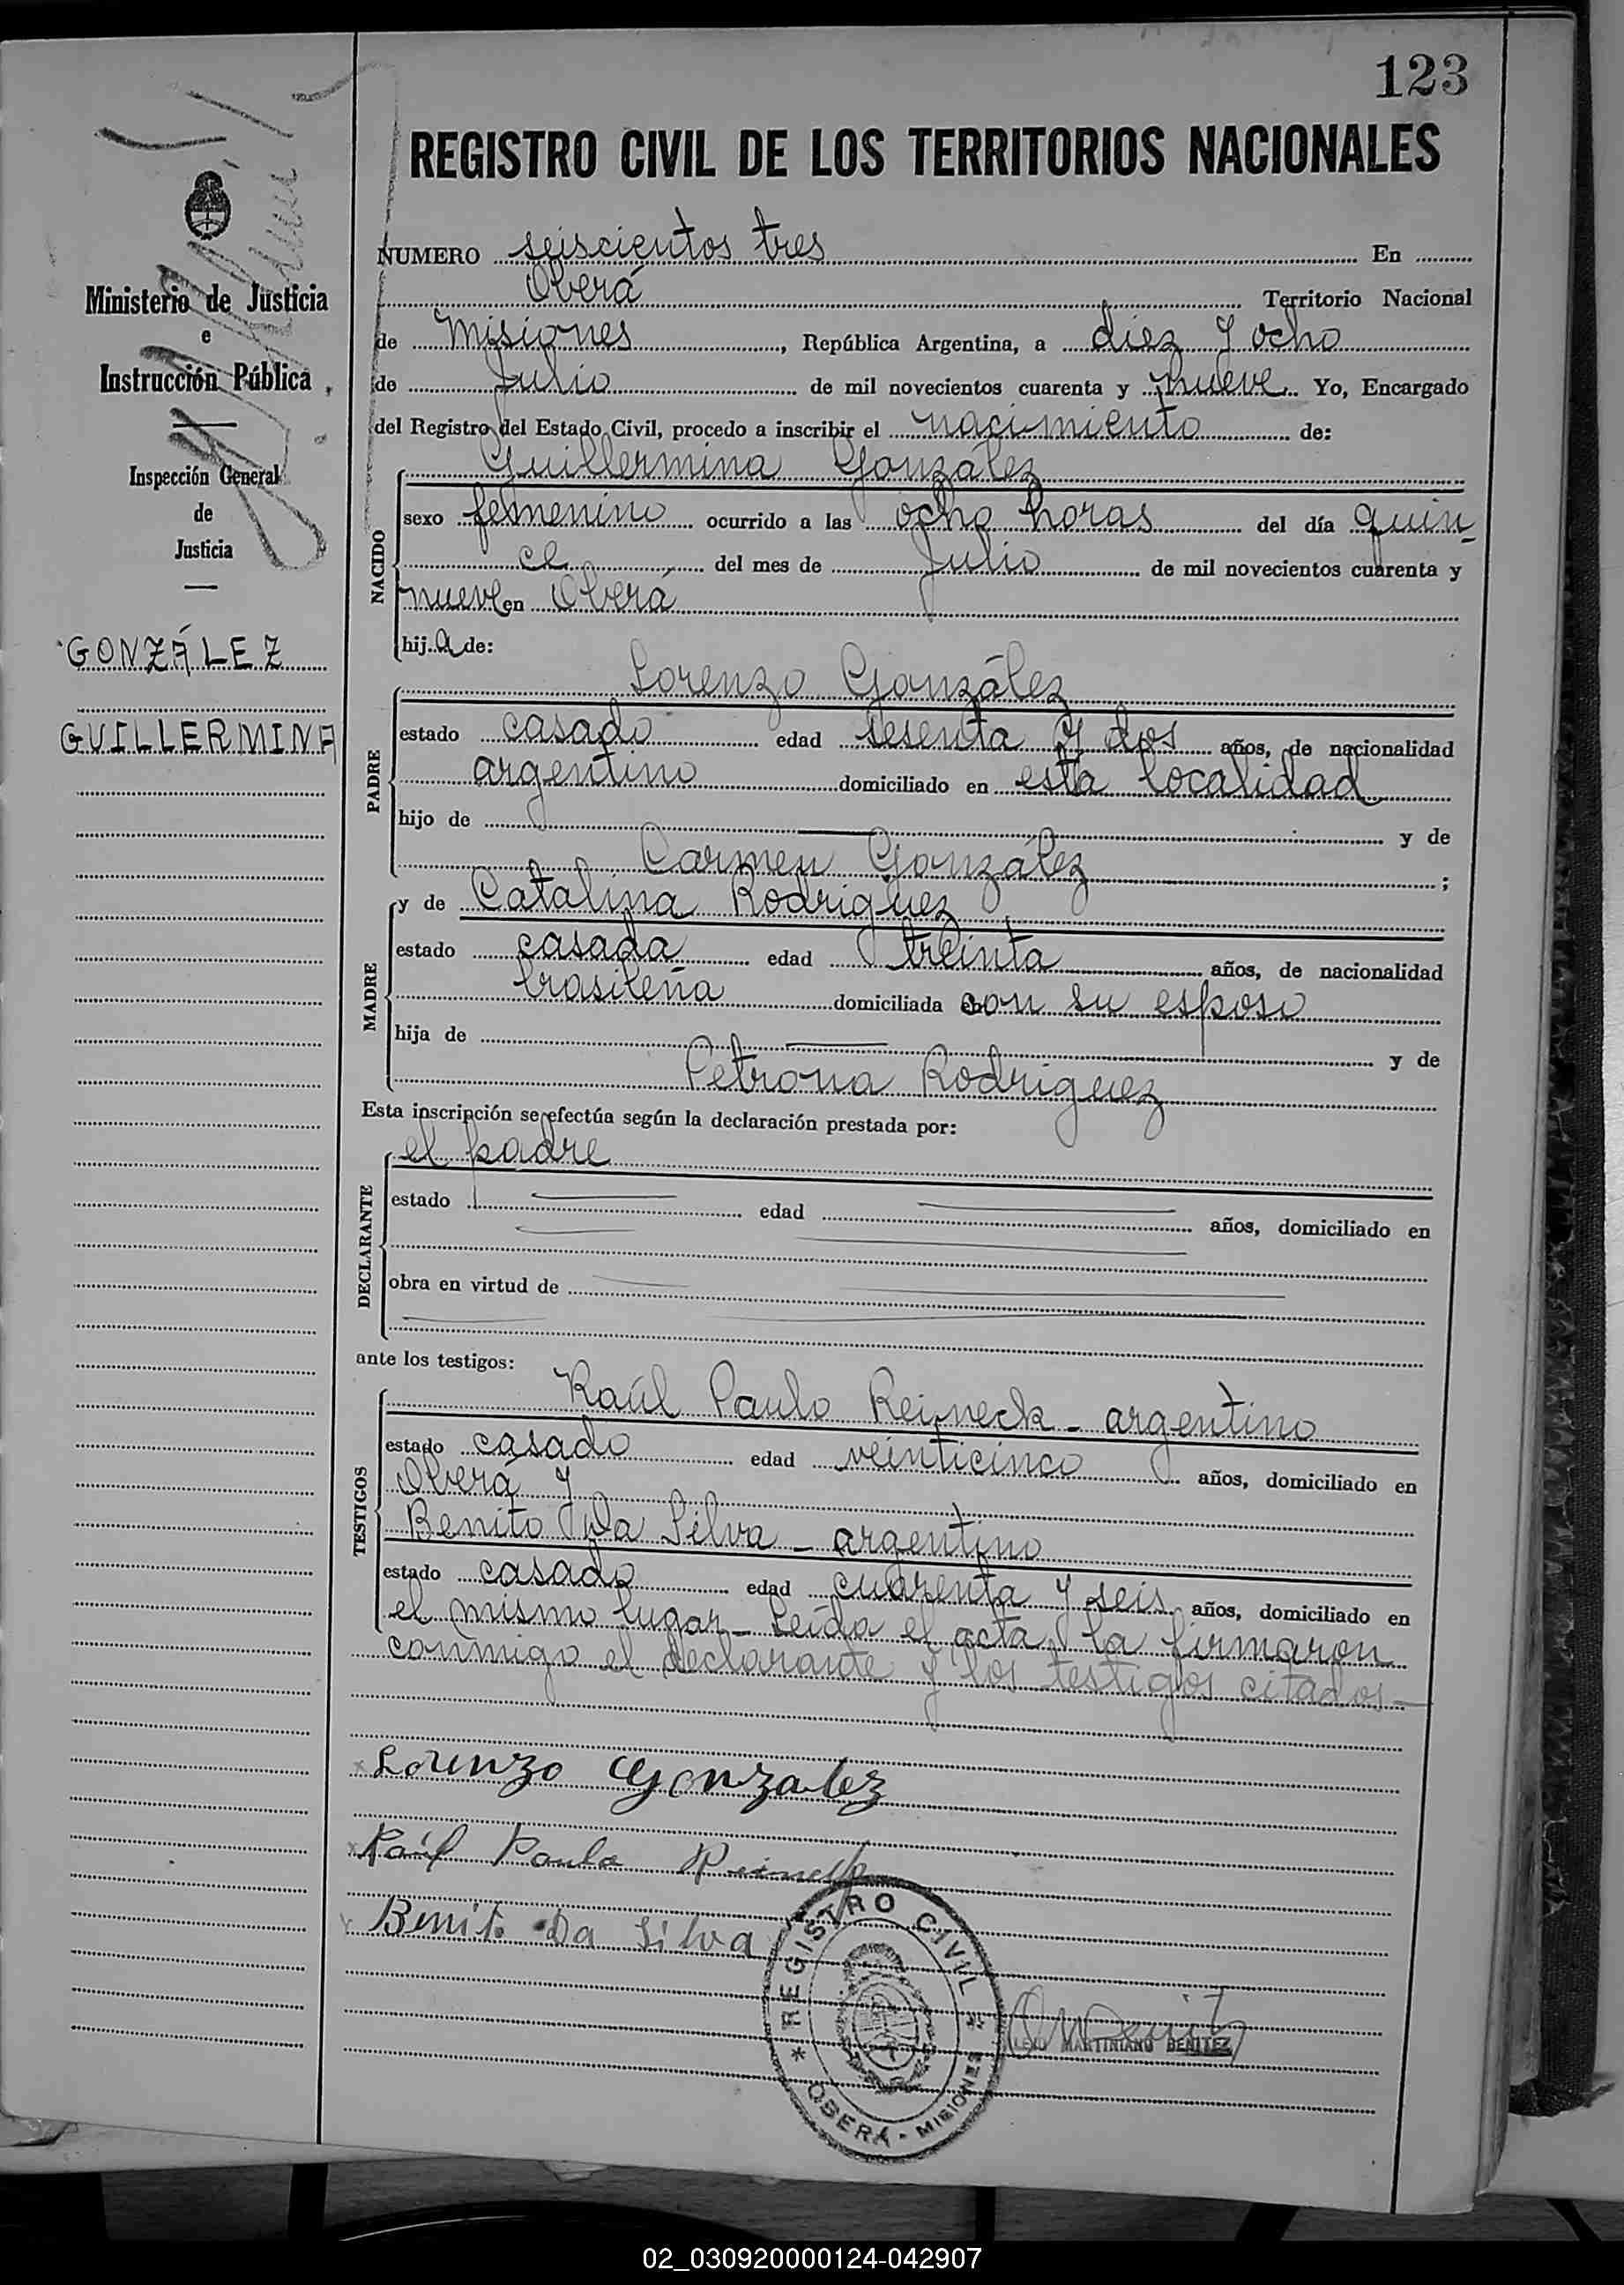 123
REGISTRO CIVIL DE LOS TERRITORIOS NACIONALES
Ministerio de Justicia
e
Instrucción Pública
Inspección General
de
Justicia
GONZÁLEZ
GUILLERMINA
NUMERO seiscientos tres En
Oberá Territorio Nacional
de Misiones, República Argentina, a diez y ocho
de Julio de mil novecientos cuarenta y nueve Yo, Encargado
del Registro del Estado Civil, procedo a inscribir el nacimiento de:
NACIDO
Guillermina González
sexo femenino ocurrido a las ocho horas del día quin-
ce del mes de Julio de mil novecientos cuarenta y
nueve en Oberá
hij a de:
PADRE
Lorenzo González
estado casado edad sesenta y dos años, de nacionalidad
argentino domiciliado en esta localidad
hijo de y de
Carmen González ;
MADRE
y de Catalina Rodriguez
estado casada edad treinta años, de nacionalidad
brasileña domiciliada con su esposo
hija de y de
Petrona Rodriguez
Esta inscripción se efectúa según la declaración prestada por:
DECLARANTE
el padre
estado edad años, domiciliado en
obra en virtud de
ante los testigos:
TESTIGOS
Raúl Paulo Reineck - argentino
estado casado edad veinticinco años, domiciliado en
Oberá y
Benito Da Silva - argentino
estado casado edad cuarenta y seis años, domiciliado en
el mismo lugar - Leída el acta, la firmaron
conmigo el declarante y los testigos citados -
Lorenzo Gonzalez
Raúl Paulo Reineck
Benito Da Silva
REGISTRO CIVIL
OBERÁ - MISIONES
MARTINIANO BENITEZ
02_030920000124-042907